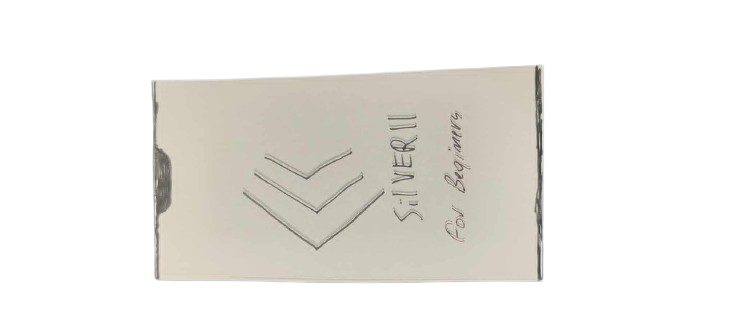 SilVER II
For Beginners